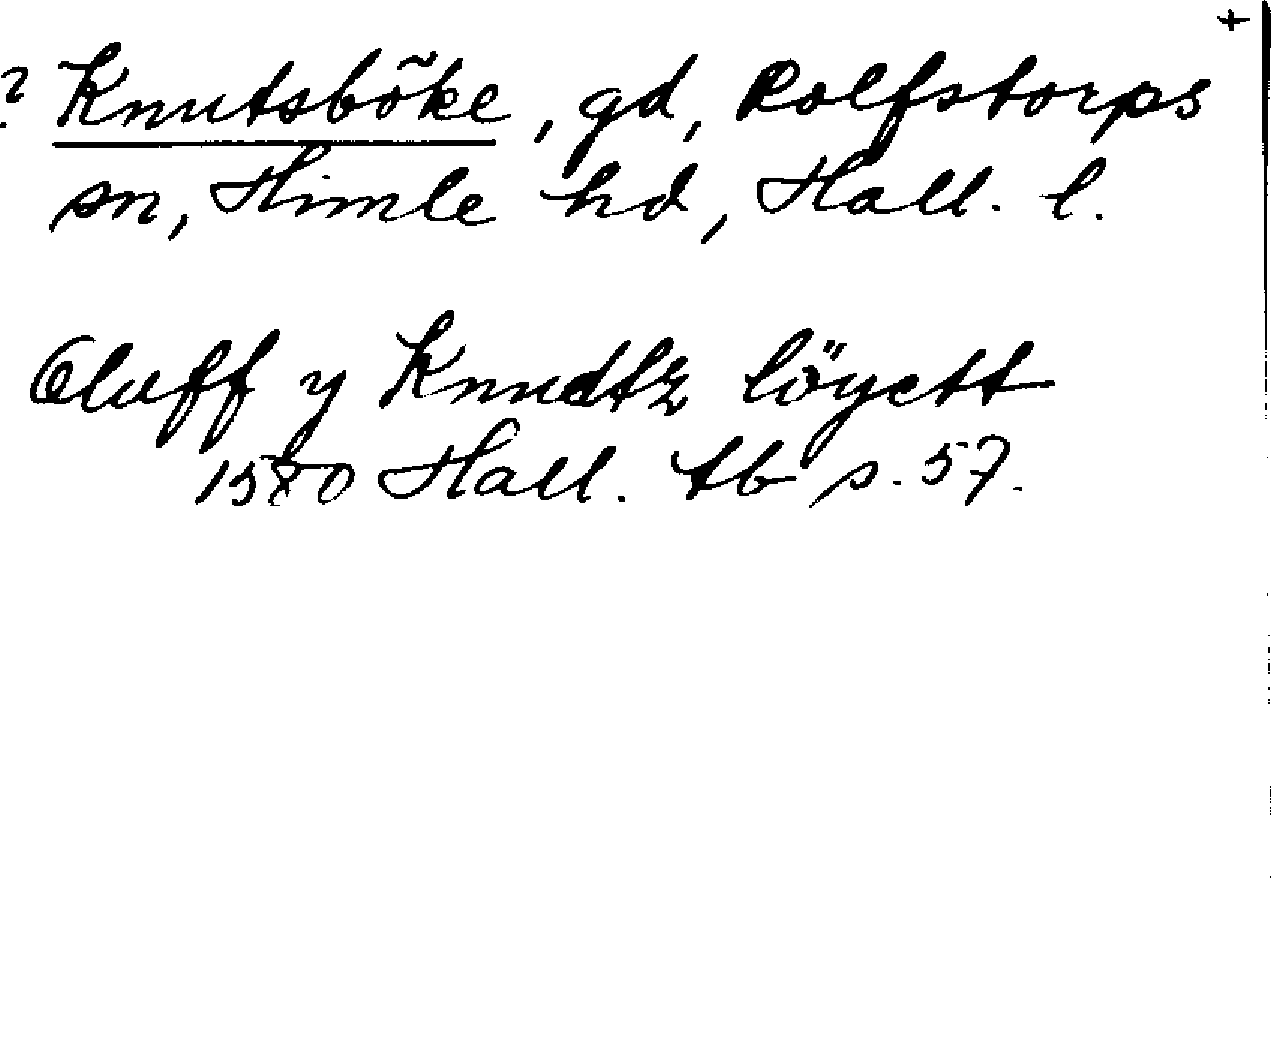 +
? Knutsböke, gd, Rolfstorps
sn, Himle hd, Hall. l.
Oluff y Knudtz löyett
1570 Hall. tb s. 57.